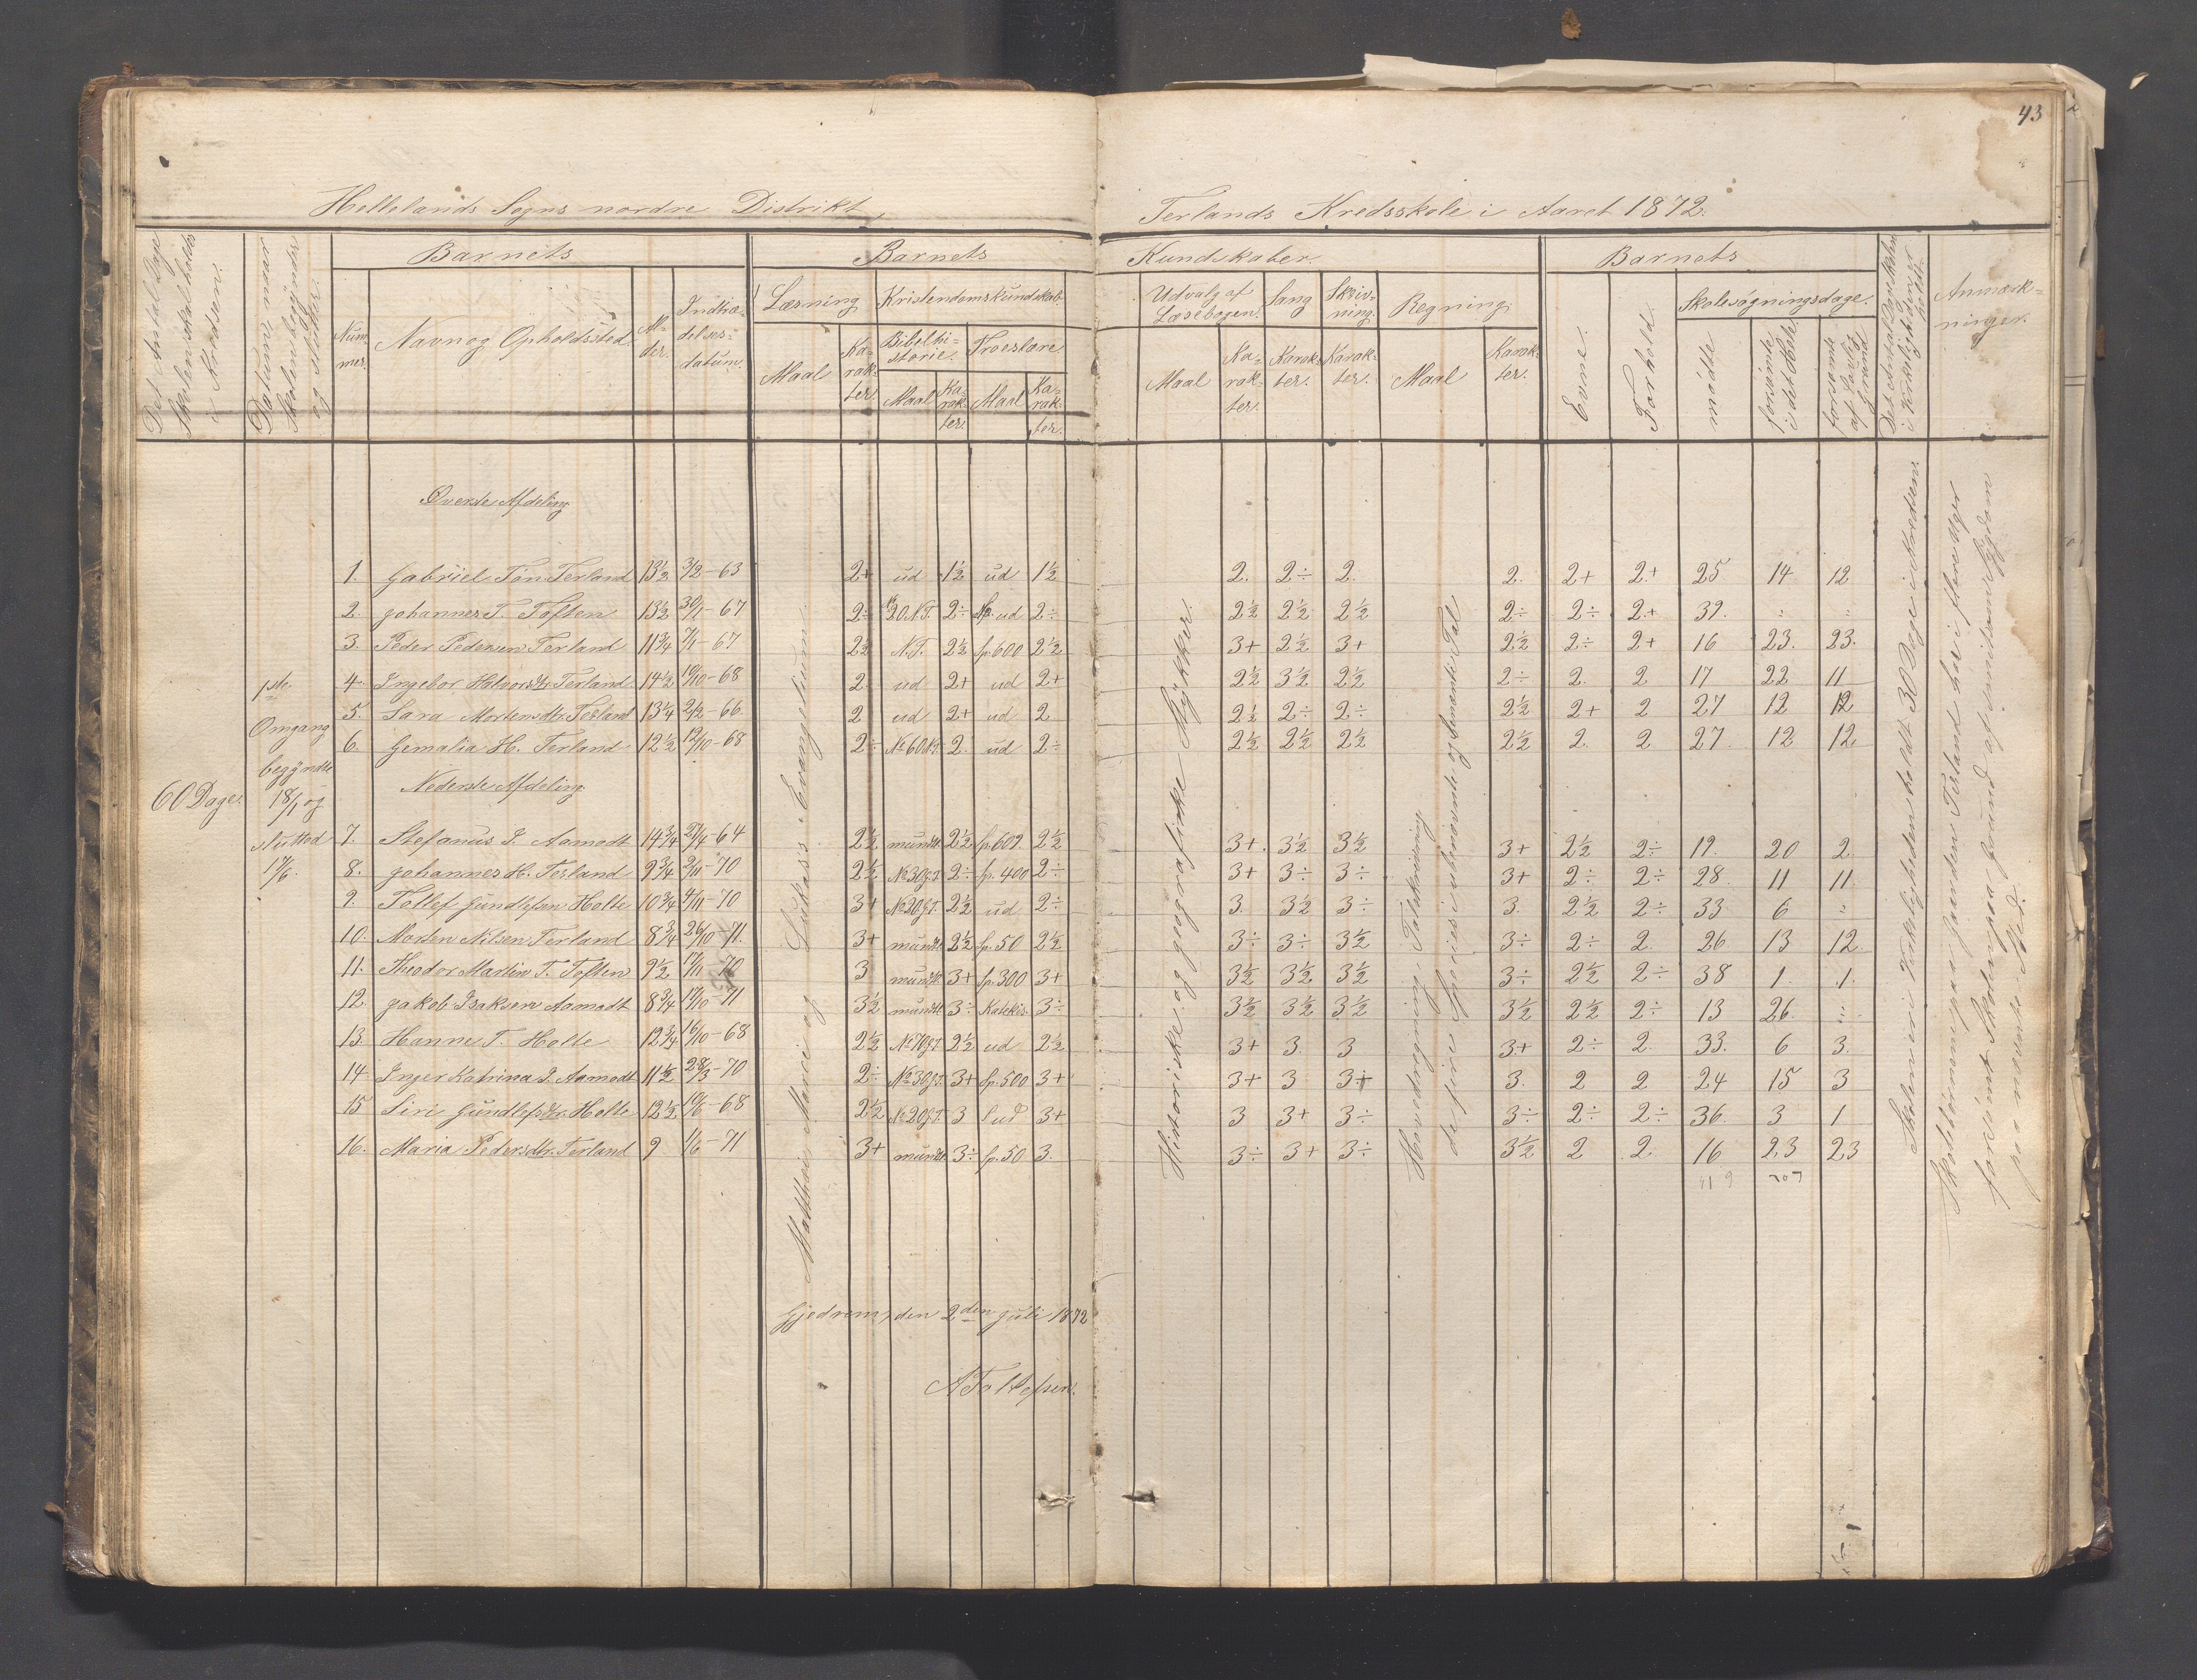 43
Hellelands Sogns nordre Distrikt,
Terlands Kredsskole i Aaret 1872.
Det Antal Dage Skolen skal holdes i Kredsen.
Datum, naar Skolen begynder og slutter.
Barnets
Nummer.
Navn og Opholdssted.
Alder.
Indtrædelsesdatum.
Barnets
Kundskaber.
Læsning
Maal
Karakter.
Kristendomskundskab
Bibelhistorie.
Maal
Karakter.
Troeslære
Maal
Karakter.
Udvalg af Læsebogen.
Maal
Karakter.
Sang
Karakter.
Skrivning.
Karakter.
Regning
Maal
Karakter.
Barnets
Evne.
Forhold.
Skolesøgningsdage.
mødte
forsømte i det Hele
forsømte af lovlig Grund
Det Antal Dage Skolen i Virkeligheden er holdt.
Anmærkninger.
60 Dage.
1ste Omgang begyndte 18/1 og sluttod 17/6.
Øverste Afdeling
1. Gabriel Tøn. Terland 13½ 3/2-63 2+ ud 1½ ud 1½ 2. 2÷ 2. 2. 2+ 2+ 25 14 12
2. Johannes T. Toften 13½ 30/1-67 2÷ 20 N.T. 2÷ ud 2÷ 2½ 2½ 2½ 2÷ 2÷ 2+ 39. " "
3. Peder Pedersen Terland 11¾ 7/1-67 2½ N.T. 2½ Sp. 600 2½ 3+ 2½ 3+ 2½ 2÷ 2+ 16 23. 23.
4. Ingebor Halvorsdtr. Terland 14½ 10/10-68 2 ud 2+ ud 2+ 2½ 3½ 2½ 2÷ 2. 2 17 22 11
5. Sara Mortensdtr. Terland 13¼ 2/2-66 2 ud 2+ ud 2 2½ 2÷ 2÷ 2½ 2+ 2 27 12 12
6. Gemalia H. Terland 12½ 12/10-68 2÷ No 60 N.T. 2. ud 2÷ 2½ 2½ 2½ 2½ 2. 2 27 12 12
Nederste Afdeling
7. Stefanus I. Aamodt 14¾ 27/4-64 2½ mundtl. 2½ Sp. 609 2½ 3+ 3½ 3½ 3+ 2½ 2÷ 19. 20 2.
8. Johannes H. Terland 9¾ 2/11-70 2½ No 30 g.T. 2÷ Sp. 400 2÷ 3+ 3÷ 3÷ 3+ 2÷ 2÷ 28 11 11.
9. Tollef Gundlefsen Holte 10¾ 4/11-70 3+ No 20 g.T. 2½ ud 2÷ 3. 3½ 3÷ 3. 2½ 2÷ 33 6 "
10. Morten Nilsen Terland 8¾ 26/10-71. 3+ mundtl. 2½ Sp. 50 2½ 3÷ 3÷ 3½ 3÷ 2÷ 2. 26 13 12
11. Theodor Martin T. Toften 9½ 17/11-70 3 mundtl. 3+ Sp. 300 3+ 3½ 3½ 3½ 3÷ 2½ 2÷ 38 1 1.
12. Jakob Isaksen Aamodt 8¾ 17/10-71 3½ mundtl. 3÷ Katekis. 3÷ 3½ 3½ 3½ 3½ 2½ 2÷ 13 26. "
13. Hanne T. Holte 12¾ 16/10-68 2½ No 70 g.T. 2½ ud 2½ 3+ 3. 3 3+ 2÷ 2. 33. 6 3.
14. Inger Katrina I. Aamodt 11½ 28/3-70 2÷ No 30 g.T. 3+ Sp. 500 3+ 3+ 3 3÷ 3. 2 2 24 15 3
15 Siri Gundlefsdtr. Holte 12½ 10/6-68 2½ No 20 g.T. 3 ud 3+ 3 3+ 3÷ 3÷ 2÷ 2÷ 36. 3 1
16. Maria Pedersdtr. Terland 9 1/6-71 3+ mundtl. 3÷ Sp. 50 3. 3÷ 3+ 3÷ 3½ 2 2. 16 23 23
Matthæi Marci og Lukass Evangelium
Historiske og geografiske Stykker.
Hovedregning. Tabelregning
de fire i ubenævnte og benævnte Tal
Skolen er i Virkeligheden holdt 30 Dage i Kredsen.
Skolebørnene paa Gaarden Terland har i flere Uger
forsømt Skolen paa Grund af smitsom Sygdom
Gjedrem, den 2den Juli 1872
A Tollefsen.